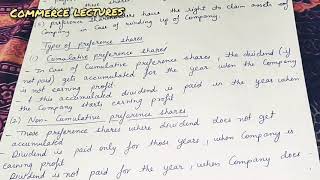 COMMERCE LECTURES
preference shares
preference shareholders have the right to claim assets of
Company in Case of winding up of Company.
Types of preference shares
(1) Cumulative preference shares
- In Case of Cumulative preference shares, the dividend (if
not paid) gets accumulated for the year when the Company
is not earning profit
- & this accumulated dividend is paid in the year when
the Company starts earning profit
(2) Non- Cumulative preference shares
- Those preference shares where dividend does not get
accumulated
- Dividend is paid only for those years, when Company is
earning profit
Dividend is not paid for the year, when Company does